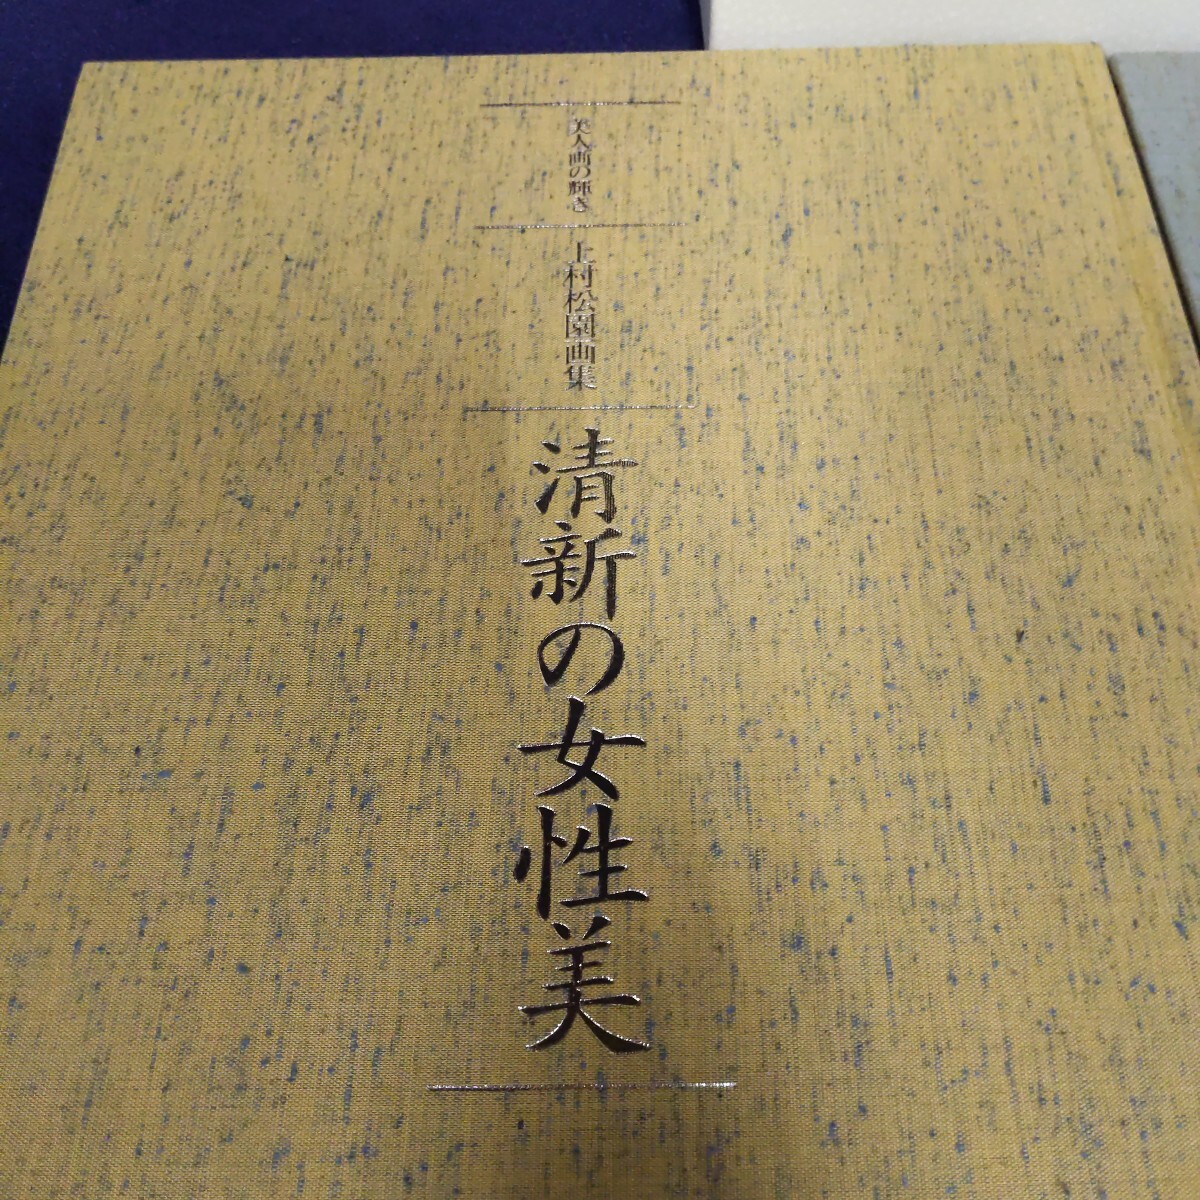 美人画の輝き
上村松園画集
清新の女性美